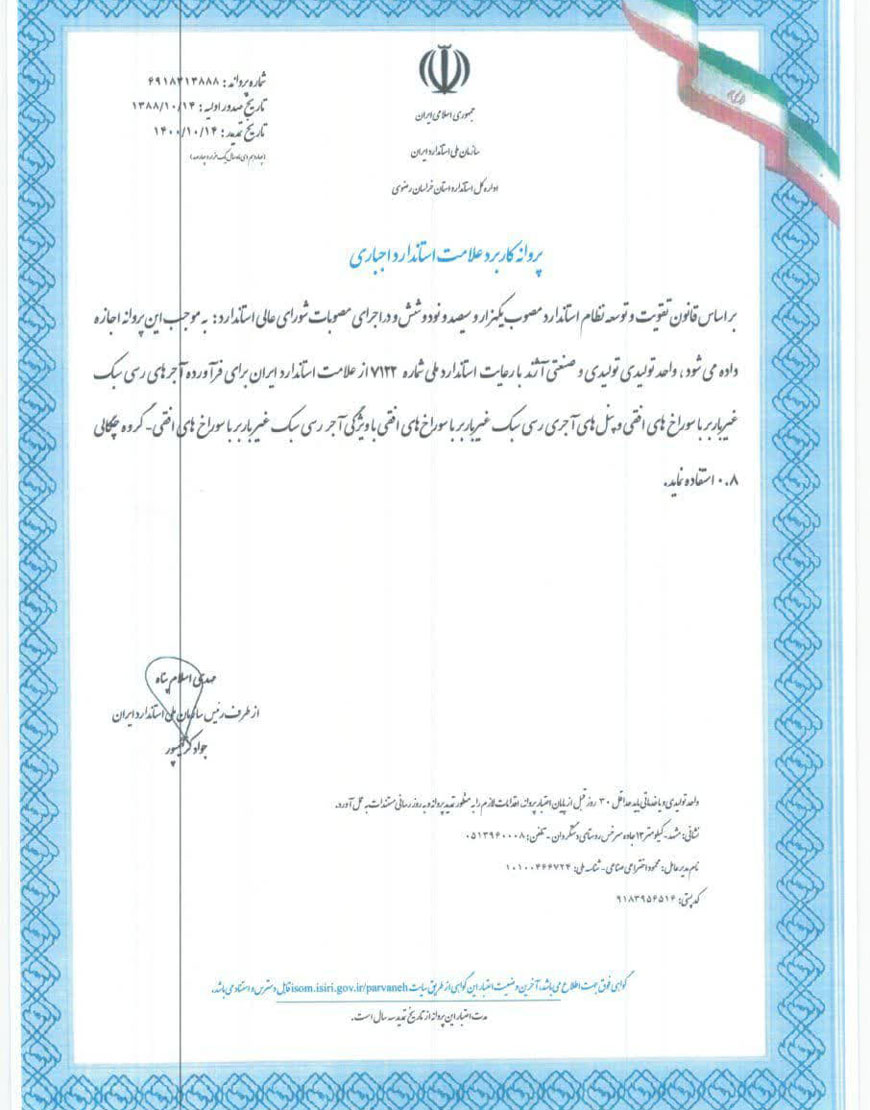 شماره پروانه: ۶۹۱۸۳۱۳۸۸۸
تاریخ صدور اولیه: ۱۳۸۸/۱۰/۱۴
تاریخ تمدید: ۱۴۰۰/۱۰/۱۴
(چهاردهم دی ماه سال یک هزار و چهارصد)
جمهوری اسلامی ایران
سازمان ملی استاندارد ایران
اداره کل استاندارد استان خراسان رضوی
پروانه کاربرد علامت استاندارد اجباری
بر اساس قانون تقویت و توسعه نظام استاندارد مصوب یکهزار و سیصد و نود و شش و در اجرای مصوبات شورای عالی استاندارد: به موجب این پروانه اجازه
داده می شود، واحد تولیدی تولیدی و صنعتی آژند با رعایت استاندارد ملی شماره ۷۱۲۲ از علامت استاندارد ایران برای فرآورده آجرهای رسی سبک
غیرباربر با سوراخ های افقی و پنل های آجری رسی سبک غیرباربر با سوراخ های افقی با ویژگی آجر رسی سبک غیرباربر با سوراخ های افقی - گروه چگالی
۰.۸ استفاده نماید.
مهدی اسلام پناه
از طرف رئیس سازمان ملی استاندارد ایران
جواد
واحد تولیدی و یا خدماتی باید حداقل ۳۰ روز قبل از پایان اعتبار پروانه، اقدامات لازم را به منظور تمدید پروانه و به روز رسانی مستندات به عمل آورد.
نشانی: مشهد - کیلومتر ۱۲ جاده سرخس روستای دستگردان - تلفن: ۰۵۱۳۹۴۰۰۰۸
نام مدیرعامل: محمود اختراعی صنایعی - شناسه ملی: ۱۰۱۰۰۴۶۶۷۲۴
کد پستی: ۹۱۸۳۹۵۴۵۱۴
گواهی فوق جهت اطلاع می باشد، آخرین وضعیت اعتبار این گواهی از طریق سایت isom.isiri.gov.ir/parvaneh قابل دسترس و استناد می باشد.
مدت اعتبار این پروانه از تاریخ تمدید سه سال است.